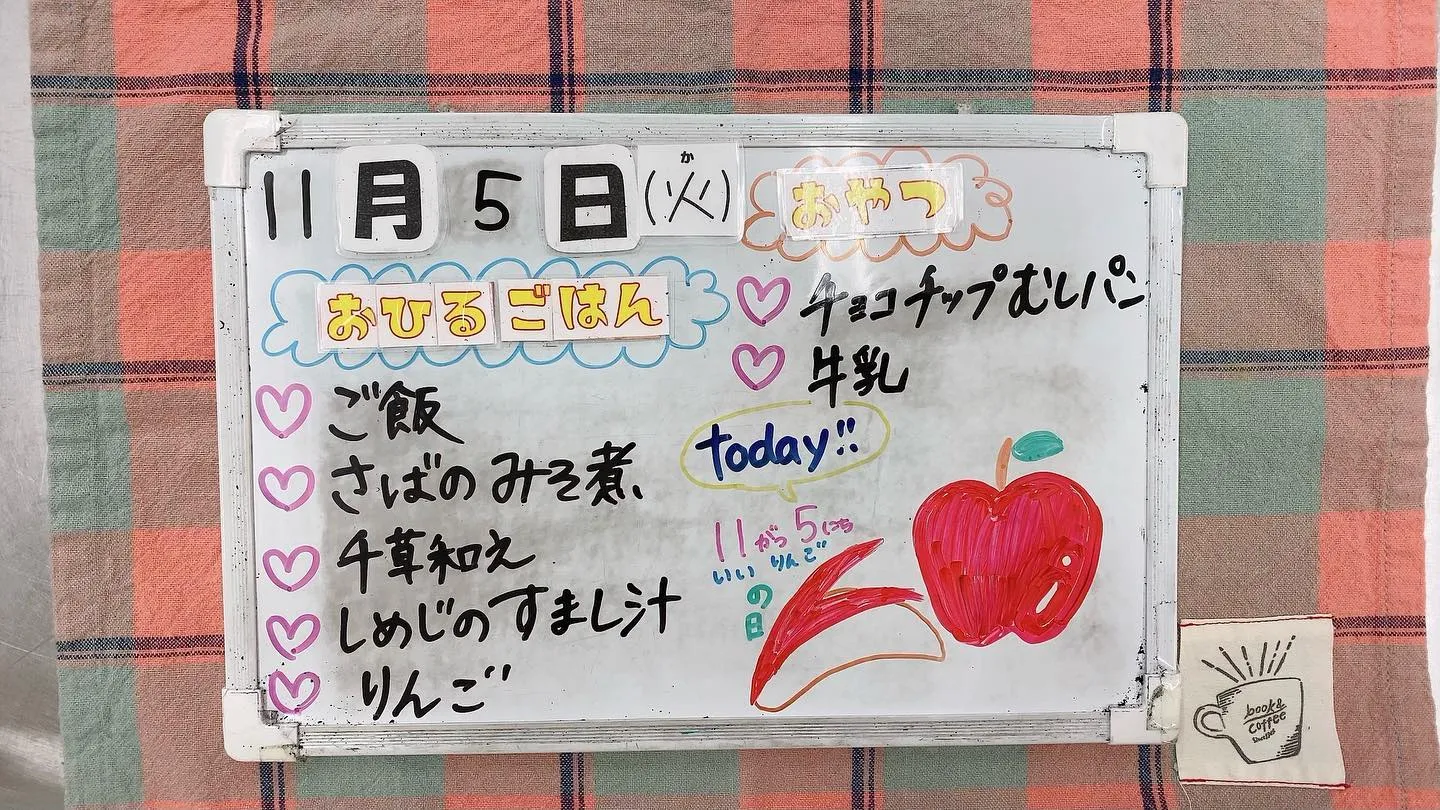 11月5日(火)
か
おひるごはん
ご飯
さばのみそ煮
千草和え
しめじのすまし汁
りんご
おやつ
チョコチップむしパン
牛乳
today!!
11が5にち
いい りんご
の日
book &
coffee